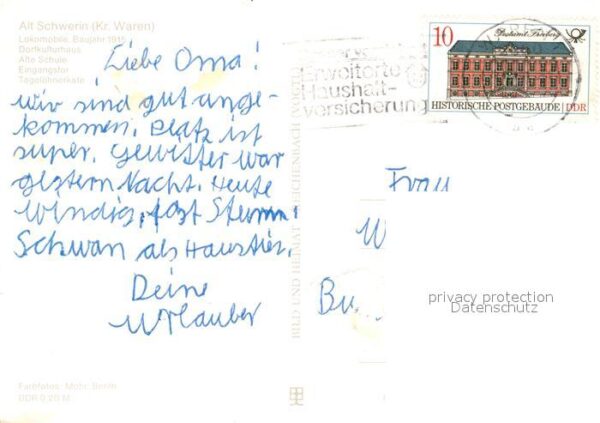 Alt Schwerin (Kr. Waren)
Lokomobile, Baujahr 1915
Dorfkulturhaus
Alte Schule
Eingangstor
Tagelöhnerkate
Liebe Oma!
wir sind gut ange-
kommen. Platz ist
super. Gewitter war
gestern Nacht. Heute
windig, fast Sturm!
Schwan als Haustier.
Deine
Urlauber
Farbfotos: Mohr, Berlin
DDR 0,20 M
BILD UND HEIMAT REICHENBACH
Erweiterte
Haushalt-
versicherung
10
Postamt Freiberg
HISTORISCHE POSTGEBÄUDE DDR
Frau
W
Bu
privacy protection
Datenschutz